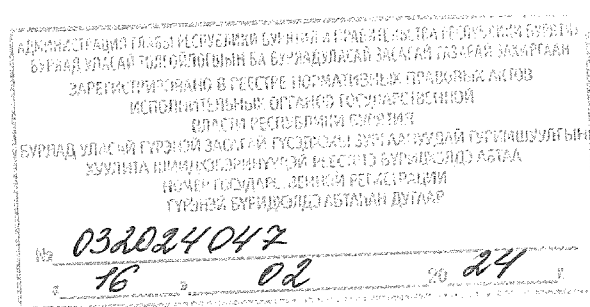 АДМИНИСТРАЦИЯ ГЛАВЫ РЕСПУБЛИКИ БУРЯТИЯ И ПРАВИТЕЛЬСТВА РЕСПУБЛИКИ БУРЯТИЯ
БУРЯАД УЛАСАЙ ТОЛГОЙЛОГШЫН БА БУРЯАДУЛАСАЙ ЗАСАГАЙ ГАЗАРАЙ ЗАХИРГААН
ЗАРЕГИСТРИРОВАНО В РЕЕСТРЕ НОРМАТИВНЫХ ПРАВОВЫХ АКТОВ
ИСПОЛНИТЕЛЬНЫХ ОРГАНОВ ГОСУДАРСТВЕННОЙ
ВЛАСТИ РЕСПУБЛИКИ БУРЯТИЯ
БУРЯАД УЛАСАЙ ГҮРЭНЭЙ ЗАСАГАЙ
ХУУЛИТА РЕЕСТРТЭ БҮРИДХЭЛДЭ АБТАА
НОМЕР ГОСУДАРСТВЕННОЙ РЕГИСТРАЦИИ
ГҮРЭНЭЙ БҮРИДХЭЛДЭ АБТАҺАН ДУГААР
№ 032024047
« 16 » 02 20 24 г.